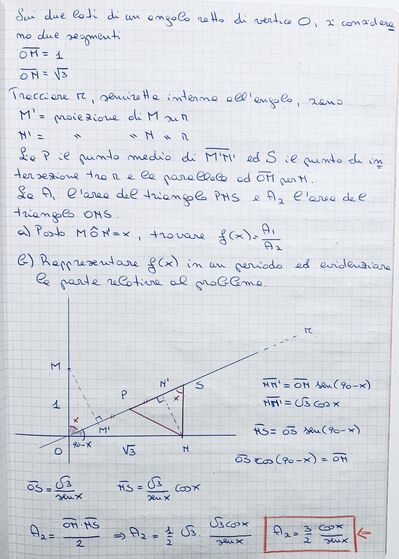 Sui due lati di un angolo retto di vertice O, si considera
no due segmenti
OM = 1
ON = √3
Tracciare r, semiretta interna all'angolo, siano
M' = proiezione di M su r
N' = " " N " r
Sia P il punto medio di M'N' ed S il punto di in
tersezione tra r e la parallela ad OM per N.
Sia A₁ l'area del triangolo PNS e A₂ l'area del
triangolo ONS.
a) Posto MÔN' = x, trovare f(x) = A₁/A₂
b) Rappresentare f(x) in un periodo ed evidenziare
la parte relativa al problema.
r
M
1
x
P
N'
S
x
M'
O
90-x
√3
N
NN' = ON sen(90-x)
NN' = √3 cosx
NS = OS sen(90-x)
OS cos(90-x) = ON
OS = √3/senx
NS = √3/senx cosx
A₂ = ON·NS/2 ⇒ A₂ = 1/2 √3 · √3cosx/senx
A₂ = 3/2 cosx/senx ←